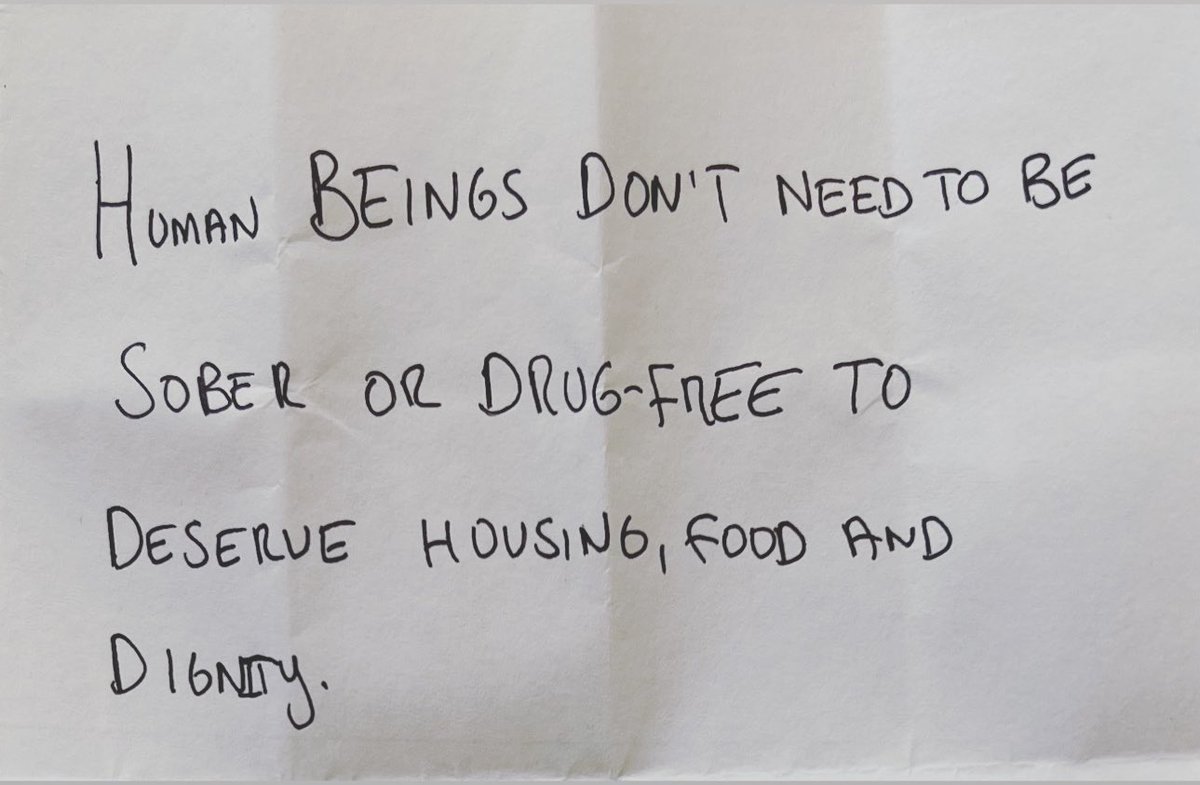 HUMAN BEINGS DON'T NEED TO BE
SOBER OR DRUG-FREE TO
DESERVE HOUSING, FOOD AND
DIGNITY.